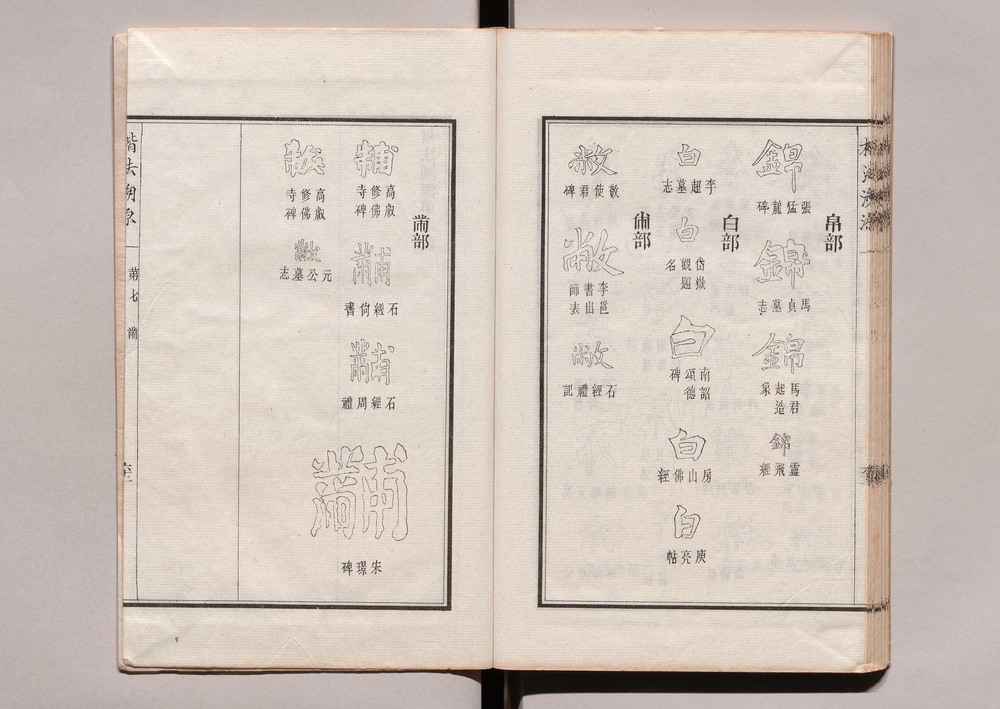 帛部
錦
張猛龍碑
錦
馬貞墓志
錦
馬君起造象
錦
靈飛經
白部
白
李超墓志
白
岱嶽觀題名
白
南詔德頌碑
白
房山佛經
白
庾亮帖
㡀部
敝
敬使君碑
敝
李邕書出師表
敝
石經禮記
黹部
黼
高叡修佛寺碑
黼
石經尙書
黼
石經周禮
黼
宋璟碑
黻
高叡修佛寺碑
黻
元公墓志
楷法溯原
第七
黹